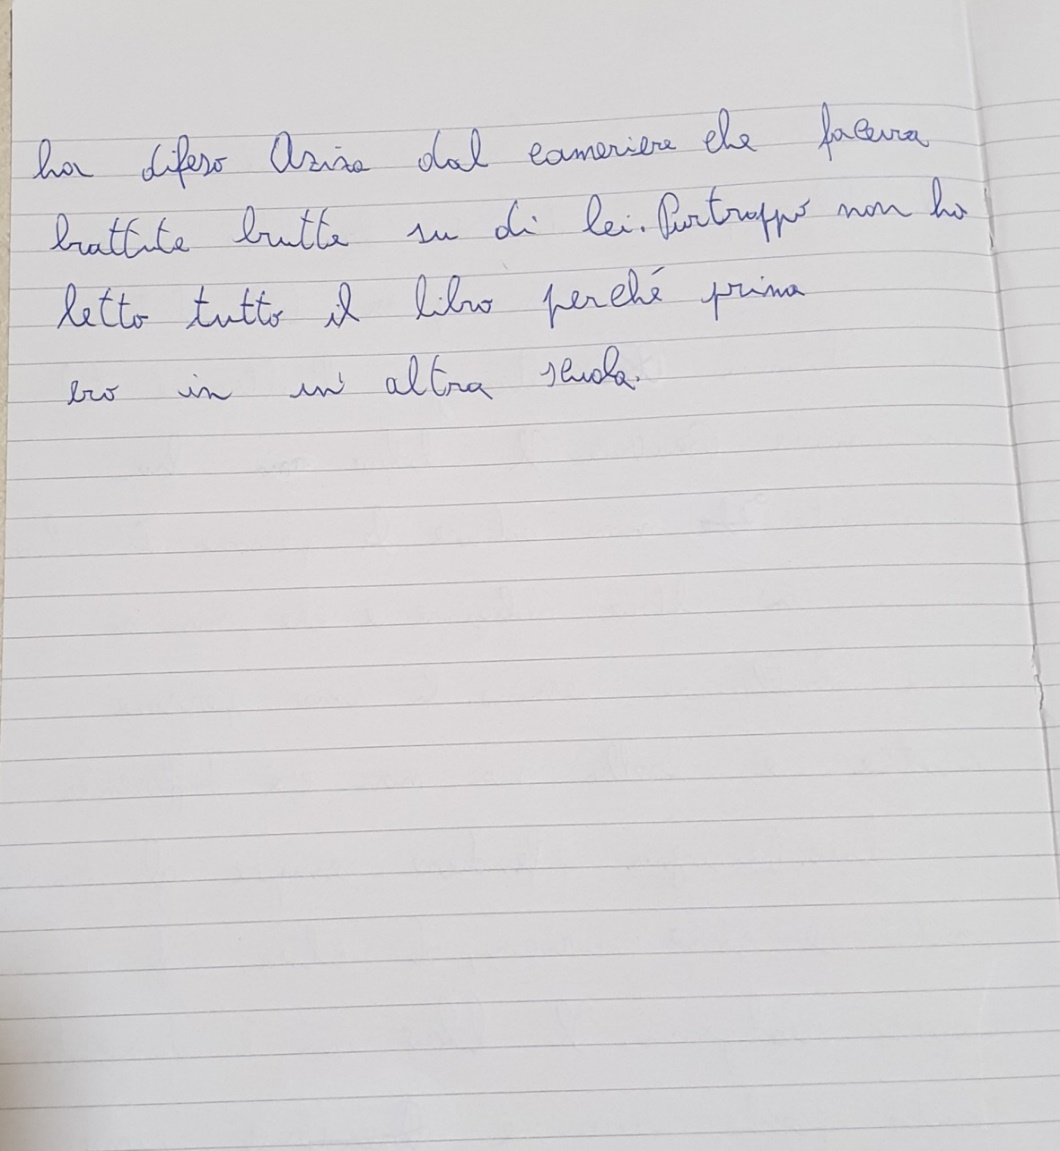 ha difeso Aziza dal cameriere che faceva
battute brutte su di lei. Purtroppo non ho
letto tutto il libro perché prima
ero in un' altra scuola.